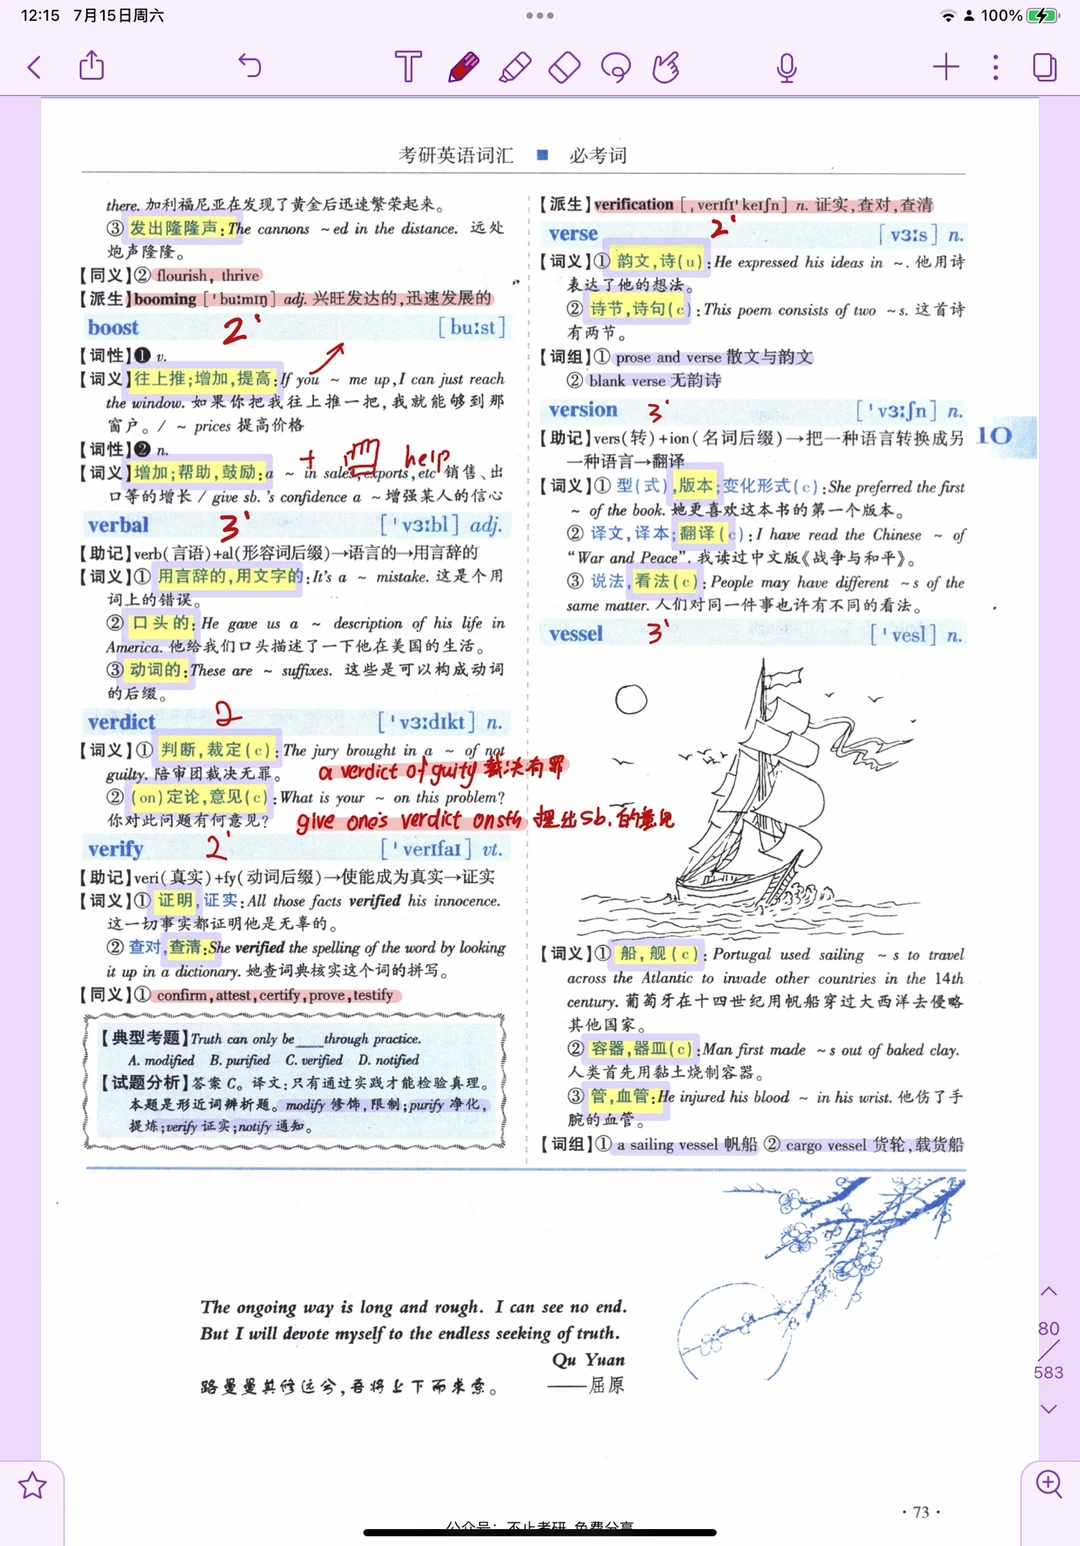 12:15 7月15日周六
100%
考研英语词汇 ■ 必考词
there. 加利福尼亚在发现了黄金后迅速繁荣起来。
③ 发出隆隆声:The cannons ~ed in the distance. 远处
炮声隆隆。
【同义】② flourish, thrive
【派生】booming [ˈbuːmɪŋ] adj. 兴旺发达的,迅速发展的
boost 2' [buːst]
【词性】❶ v.
【词义】往上推;增加,提高:If you ~ me up,I can just reach
the window. 如果你把我往上推一把,我就能够到那
窗户。/ ~ prices 提高价格
【词性】❷ n.
+ help
【词义】增加;帮助,鼓励:a ~ in sales,exports,etc 销售、出
口等的增长 / give sb. 's confidence a ~增强某人的信心
verbal 3' [ˈvɜːbl] adj.
【助记】verb(言语)+al(形容词后缀)→语言的→用言辞的
【词义】① 用言辞的,用文字的:It's a ~ mistake. 这是个用
词上的错误。
② 口头的: He gave us a ~ description of his life in
America. 他给我们口头描述了一下他在美国的生活。
③ 动词的:These are ~ suffixes. 这些是可以构成动词
的后缀。
verdict 2 [ˈvɜːdɪkt] n.
【词义】① 判断,裁定(c):The jury brought in a ~ of not
guilty. 陪审团裁决无罪。
a verdict of guity 裁决有罪
② (on)定论,意见(c):What is your ~ on this problem?
你对此问题有何意见?
give one's verdict on sth 提出sb.的意见
verify 2' [ˈverɪfaɪ] vt.
【助记】veri(真实)+fy(动词后缀)→使能成为真实→证实
【词义】① 证明,证实:All those facts verified his innocence.
这一切事实都证明他是无辜的。
② 查对,查清:She verified the spelling of the word by looking
it up in a dictionary. 她查词典核实这个词的拼写。
【同义】① confirm,attest,certify,prove,testify
【典型考题】Truth can only be____through practice.
A. modified B. purified C. verified D. notified
【试题分析】答案 C。译文:只有通过实践才能检验真理。
本题是形近词辨析题。modify 修饰,限制;purify 净化,
提炼;verify 证实;notify 通知。
【派生】verification [ˌverɪfɪˈkeɪʃn] n. 证实,查对,查清
verse 2' [vɜːs] n.
【词义】① 韵文,诗(u):He expressed his ideas in ~. 他用诗
表达了他的想法。
② 诗节,诗句(c):This poem consists of two ~s. 这首诗
有两节。
【词组】① prose and verse 散文与韵文
② blank verse 无韵诗
version 3' [ˈvɜːʃn] n.
10
【助记】vers(转)+ion(名词后缀)→把一种语言转换成另
一种语言→翻译
【词义】① 型(式),版本;变化形式(c):She preferred the first
~ of the book. 她更喜欢这本书的第一个版本。
② 译文,译本;翻译(c):I have read the Chinese ~ of
“War and Peace”. 我读过中文版《战争与和平》。
③ 说法,看法(c):People may have different ~s of the
same matter. 人们对同一件事也许有不同的看法。
vessel 3' [ˈvesl] n.
【词义】① 船,舰(c): Portugal used sailing ~s to travel
across the Atlantic to invade other countries in the 14th
century. 葡萄牙在十四世纪用帆船穿过大西洋去侵略
其他国家。
② 容器,器皿(c):Man first made ~s out of baked clay.
人类首先用黏土烧制容器。
③ 管,血管:He injured his blood ~ in his wrist. 他伤了手
腕的血管。
【词组】① a sailing vessel 帆船 ② cargo vessel 货轮,载货船
The ongoing way is long and rough. I can see no end.
But I will devote myself to the endless seeking of truth.
Qu Yuan
路曼曼其修远兮,吾将上下而求索。 ——屈原
80
583
·73·
公众号：不止考研 免费分享